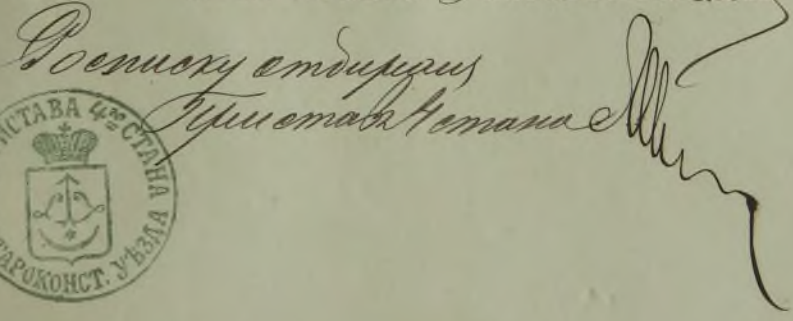 Росписку отбиралъ
Приставъ 4 стана
ИСТАВА 4го СТАНА
ТАРОКОНСТ. УѢЗДА